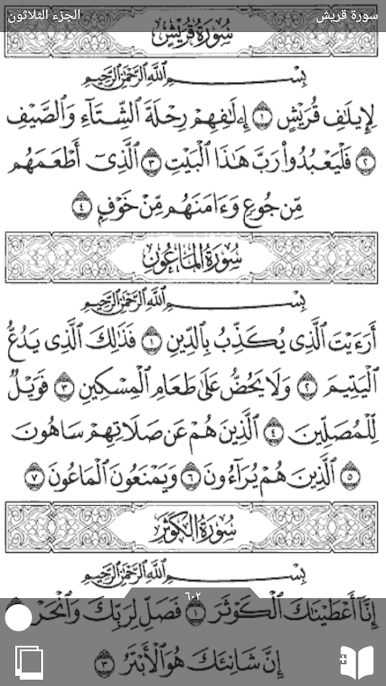 سورة قريش الجزء الثلاثون
سُورَةُ قُرَيْشٍ
بِسْمِ ٱللَّهِ ٱلرَّحْمَٰنِ ٱلرَّحِيمِ
لِإِيلَٰفِ قُرَيْشٍ ١ إِۦلَٰفِهِمْ رِحْلَةَ ٱلشِّتَآءِ وَٱلصَّيْفِ
٢ فَلْيَعْبُدُوا۟ رَبَّ هَٰذَا ٱلْبَيْتِ ٣ ٱلَّذِىٓ أَطْعَمَهُم
مِّن جُوعٍ وَءَامَنَهُم مِّنْ خَوْفٍۭ ٤
سُورَةُ ٱلْمَاعُونِ
بِسْمِ ٱللَّهِ ٱلرَّحْمَٰنِ ٱلرَّحِيمِ
أَرَءَيْتَ ٱلَّذِى يُكَذِّبُ بِٱلدِّينِ ١ فَذَٰلِكَ ٱلَّذِى يَدُعُّ
ٱلْيَتِيمَ ٢ وَلَا يَحُضُّ عَلَىٰ طَعَامِ ٱلْمِسْكِينِ ٣ فَوَيْلٌ
لِّلْمُصَلِّينَ ٤ ٱلَّذِينَ هُمْ عَن صَلَاتِهِمْ سَاهُونَ
٥ ٱلَّذِينَ هُمْ يُرَآءُونَ ٦ وَيَمْنَعُونَ ٱلْمَاعُونَ ٧
سُورَةُ ٱلْكَوْثَرِ
بِسْمِ ٱللَّهِ ٱلرَّحْمَٰنِ ٱلرَّحِيمِ
٦٠٢
إِنَّآ أَعْطَيْنَٰكَ ٱلْكَوْثَرَ ١ فَصَلِّ لِرَبِّكَ وَٱنْحَرْ
إِنَّ شَانِئَكَ هُوَ ٱلْأَبْتَرُ ٣